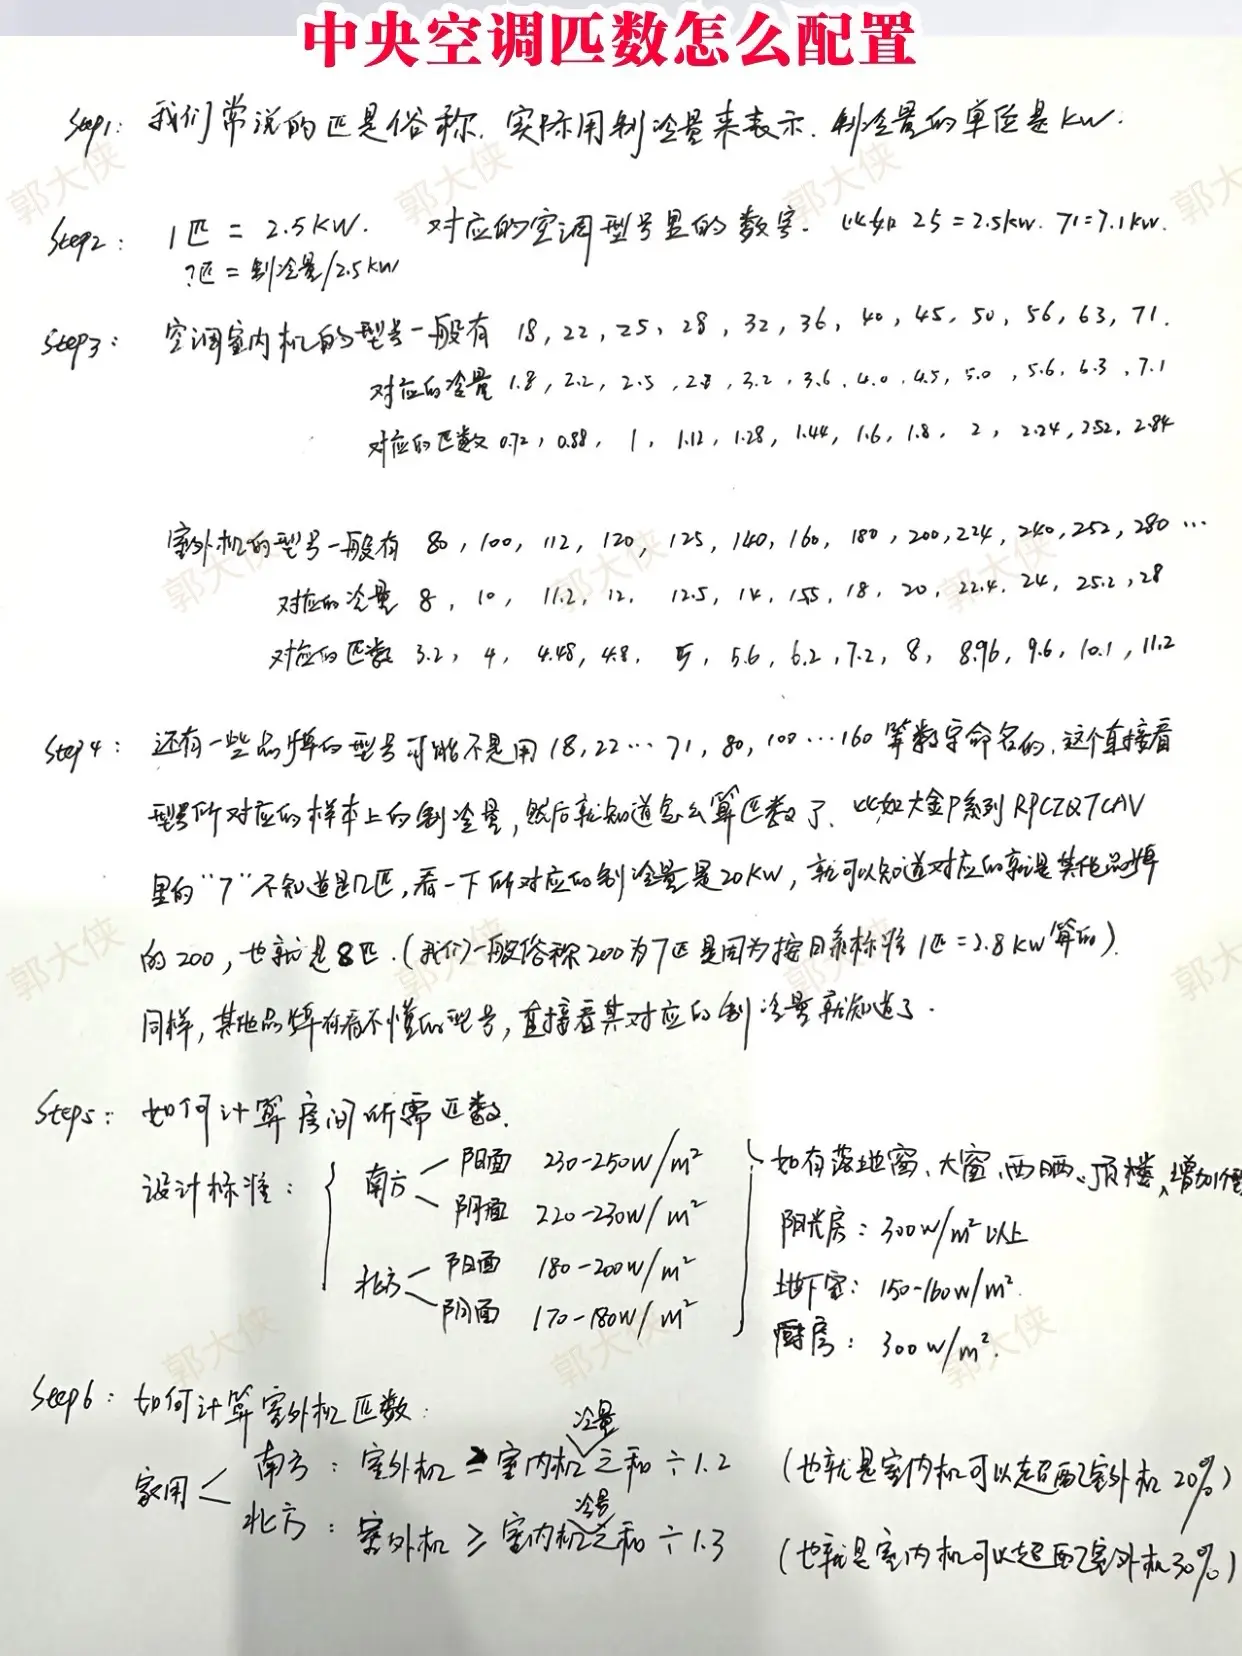 中央空调匹数怎么配置
Step1: 我们常说的匹是俗称. 实际用制冷量来表示. 制冷量的单位是KW.
Step2: 1匹 = 2.5KW. 对应的空调型号里的数字. 比如 25=2.5kw. 71=7.1kw.
?匹 = 制冷量/2.5kW
Step3: 空调室内机的型号一般有 18, 22, 25, 28, 32, 36, 40, 45, 50, 56, 63, 71.
对应的冷量 1.8, 2.2, 2.5, 2.8, 3.2, 3.6, 4.0, 4.5, 5.0, 5.6, 6.3, 7.1
对应的匹数 0.72, 0.88, 1, 1.12, 1.28, 1.44, 1.6, 1.8, 2, 2.24, 2.52, 2.84
室外机的型号一般有 80, 100, 112, 120, 125, 140, 160, 180, 200, 224, 240, 252, 280 ...
对应的冷量 8, 10, 11.2, 12. 12.5, 14, 15.5, 18, 20, 22.4, 24, 25.2, 28
对应的匹数 3.2, 4, 4.48, 4.8, 5, 5.6, 6.2, 7.2, 8, 8.96, 9.6, 10.1, 11.2
Step4: 还有一些品牌的型号可能不是用18,22...71, 80, 100...160等数字命名的, 这个直接看
型号所对应的样本上的制冷量, 然后就知道怎么算匹数了. 比如大金P系列RPCZQ7CAV
里的“7”不知道是几匹, 看一下所对应的制冷量是20KW, 就可以知道对应的就是其他品牌
的200, 也就是8匹. (我们一般俗称200为7匹是因为按日系标准1匹=2.8KW算的).
同样, 其他品牌有看不懂的型号, 直接看其对应的制冷量就知道了.
Step5: 如何计算房间所需匹数.
设计标准: 南方 阳面 230-250W/m²
阴面 220-230W/m²
北方 阳面 180-200W/m²
阴面 170-180W/m²
如有落地窗、大窗、西晒、顶楼, 增加
阳光房: 300W/m²以上
地下室: 150-160W/m².
厨房: 300W/m².
Step6: 如何计算室外机匹数:
家用 南方: 室外机 ≥ 室内机冷量之和÷1.2 (也就是室内机可以超配室外机20%)
北方: 室外机 ≥ 室内机冷量之和÷1.3 (也就是室内机可以超配室外机30%)
郭大侠
郭大侠
郭大侠
郭大侠
郭大侠
郭大侠
郭大侠
郭大侠
郭大侠
郭大侠
郭大侠
郭大侠
郭大侠
郭大侠